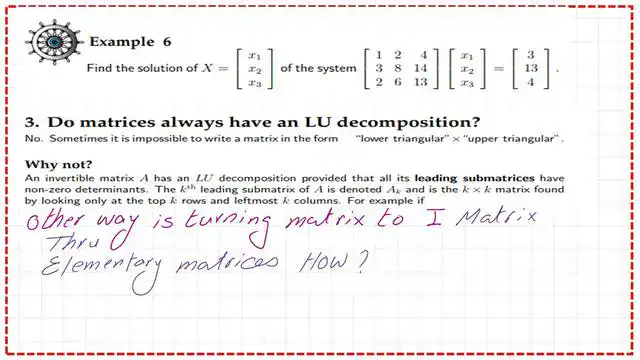 Example 6
Find the solution of X = [ x₁ x₂ x₃ ] of the system [ 1 2 4 3 8 14 2 6 13 ] [ x₁ x₂ x₃ ] = [ 3 13 4 ] .
3. Do matrices always have an LU decomposition?
No. Sometimes it is impossible to write a matrix in the form “lower triangular” × “upper triangular”.
Why not?
An invertible matrix A has an LU decomposition provided that all its leading submatrices have
non-zero determinants. The kᵗʰ leading submatrix of A is denoted Aₖ and is the k × k matrix found
by looking only at the top k rows and leftmost k columns. For example if
other way is turning matrix to I Matrix
Thru
Elementary matrices How?